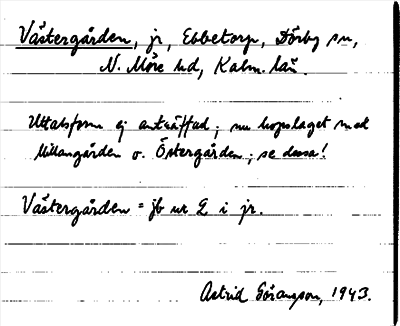 Västergården, jr, Ebbetorp, Dörby sn,
N. Möre hd, Kalm. län.
Uttalsform ej anträffad; nu hopslaget med
Mellangården o. Östergården; se dessa!
Västergården = jb nr 2 i jr.
Astrid Göransson, 1943.